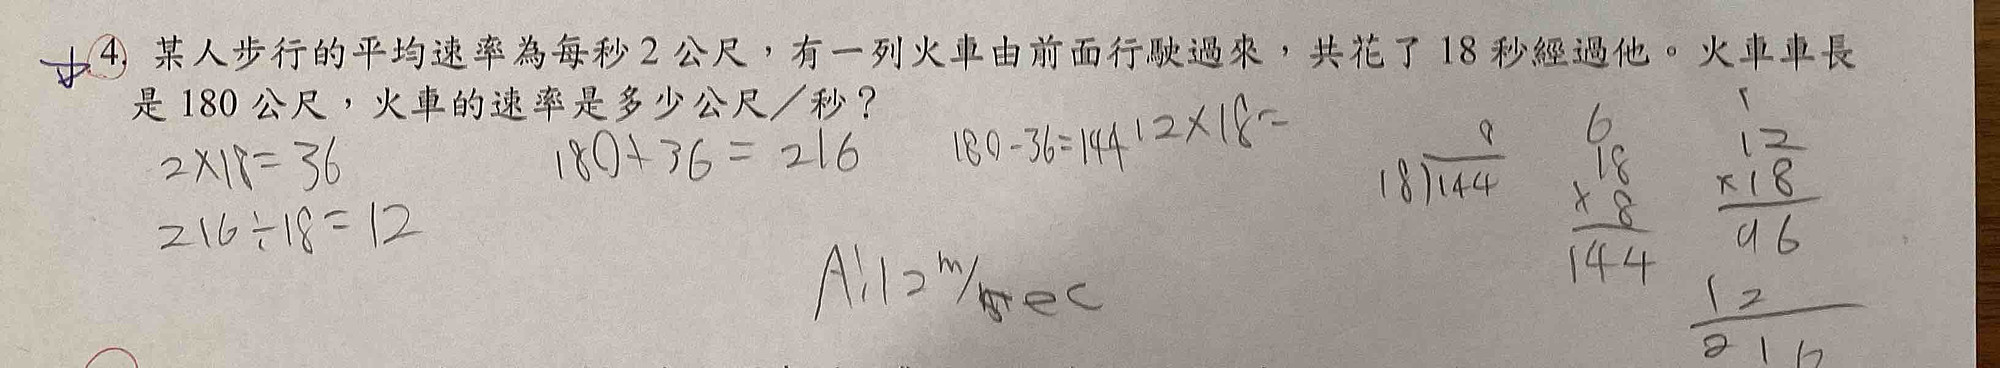 4. 某人步行的平均速率為每秒2公尺，有一列火車由前面行駛過來，共花了18秒經過他。火車車長
是180公尺，火車的速率是多少公尺／秒？
2×18=36
180+36=216
180-36=144
12×18=
216÷18=12
A:12m/sec
8
18)144
6
18
×8
144
1
12
×18
96
12
216